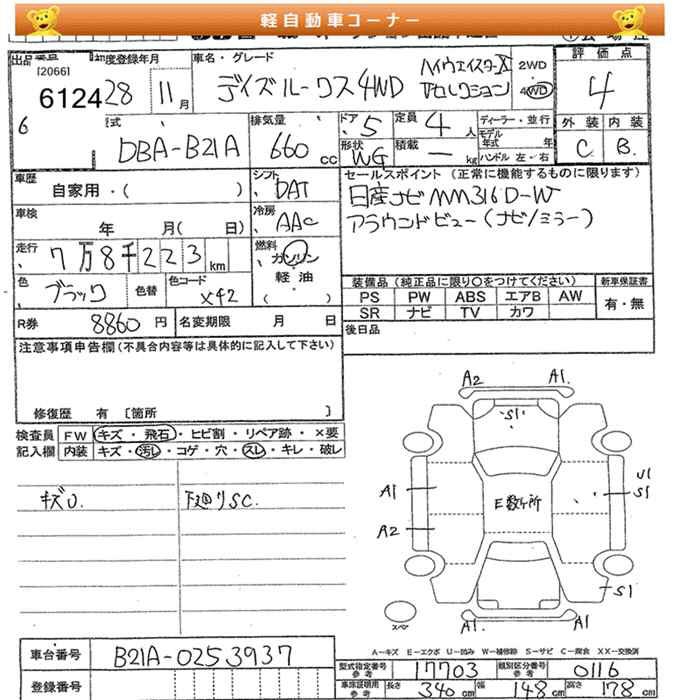 軽自動車コーナー
出品番号
[2066]
6124
6
初度登録年月
28 11月
車名・グレード
デイズルークス4WD
ハイウェイスターX
Vセレクション
2WD
・
4WD
評価点
4
外装 内装
C B
型式
DBA-B21A
排気量
660 cc
ドア 5
形状 WG
定員 4 人
積載 ー kg
ディーラー・並行
モデル年式 年式
ハンドル 左・右
車歴
自家用・( )
シフト
DAT
車検
年 月( 日)
冷房
AAC
走行
7万8千223km
燃料
ガソリン
・
軽油
( )
色
ブラック
色替
色コード
X42
R券 8860円
名変期限 月 日
セールスポイント(正常に機能するものに限ります)
日産ナビMM316D-W
アラウンドビュー(ナビ/ミラー)
装備品(純正品に限り○をつけてください)
PS PW ABS エアB AW
SR ナビ TV カワ
新車保証書
有・無
後日品
注意事項申告欄(不具合内容等は具体的に記入して下さい)
修復歴 有 [箇所 ]
検査員
記入欄
FW キズ・飛石・ヒビ割・リペア跡・×要
内装 キズ・汚レ・コゲ・穴・スレ・キレ・破レ
キズU.
下廻りSC.
A2 A1.
S1
A1
A2
E数ヶ所
U1
S1
S1
A1. A1
スペア
A-キズ E-エクボ U-凹み W-補修跡 S-サビ C-腐食 XX-交換済
車台番号 B21A-0253937
登録番号
型式指定番号
参考
17703
類別区分番号
参考
0116
車庫証明用
参考
長さ 340cm
幅 148cm
高さ 178cm